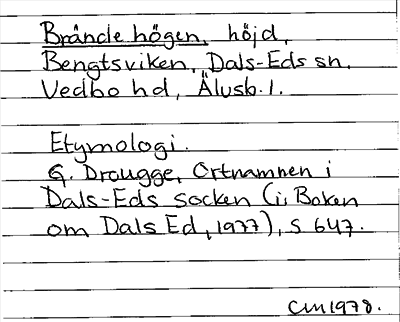 Brånde högen, höjd,
Bengtsviken, Dals-Eds sn,
Vedbo hd, Älvsb. l.
Etymologi.
G. Drougge, Ortnamnen i
Dals-Eds socken (i, Boken
om Dals Ed, 1977), s 647.
CM 1978.